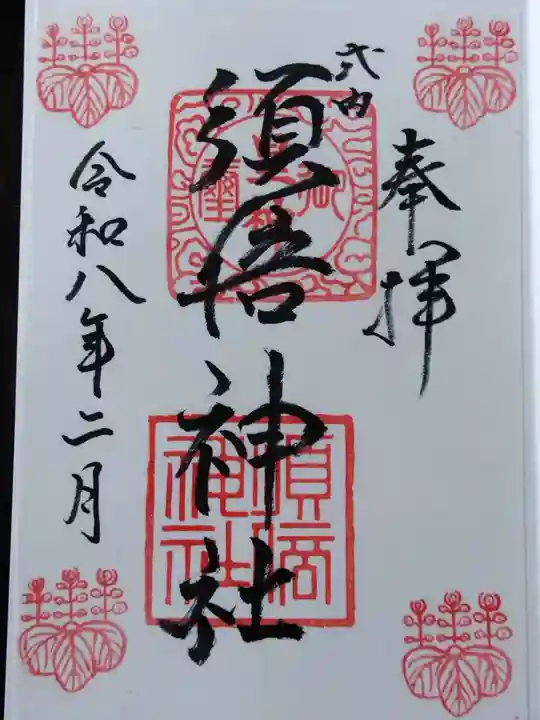 奉拝
式内
須倍神社
令和八年二月
須倍
神社